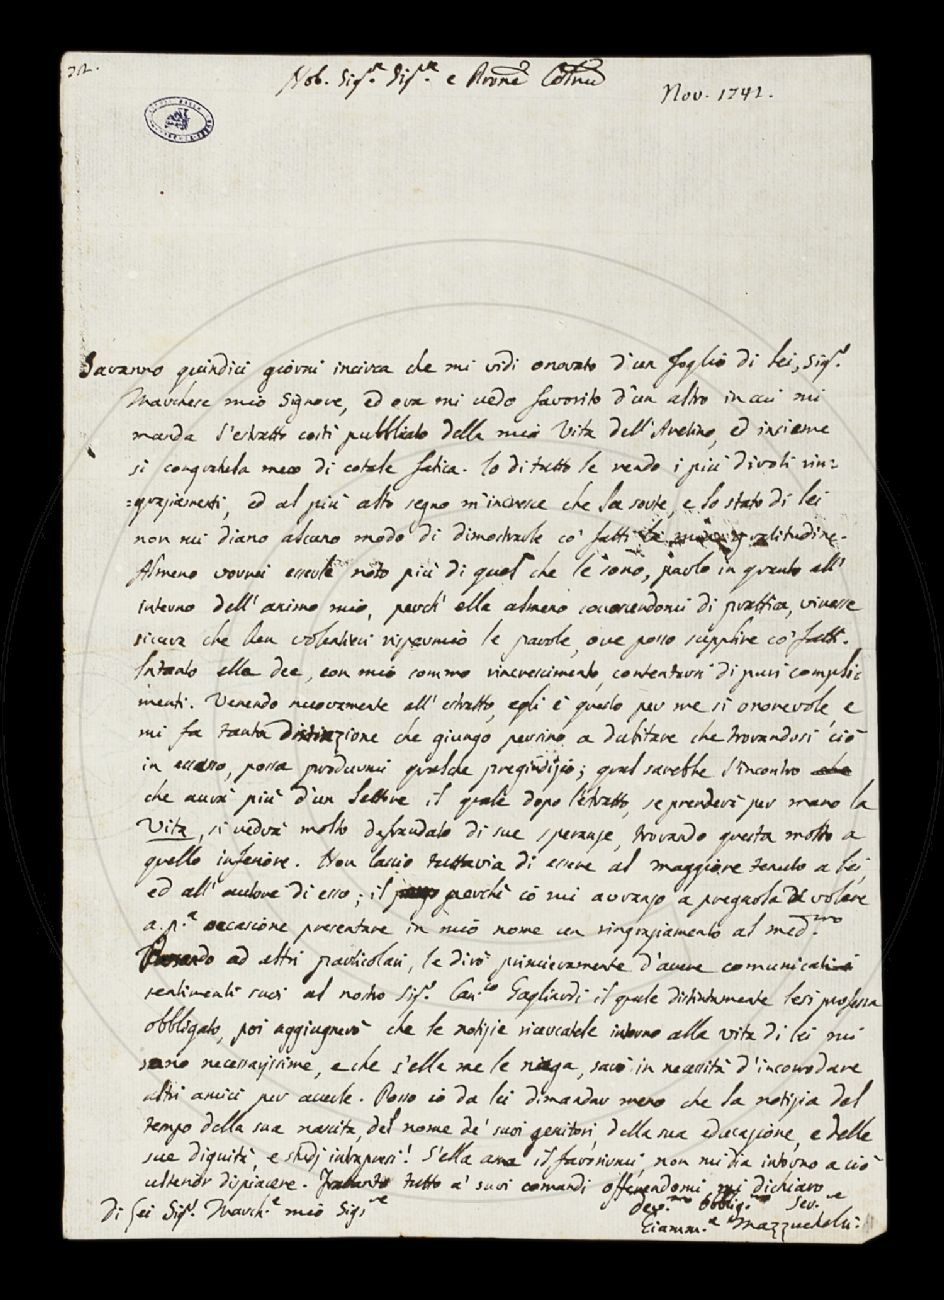 Nob. Sig.r Sig.r e Prone Colmo
Nov. 1741.
Saranno quindici giorni incirca che mi vidi onorato d'un foglio di Lei, Sig.r
Marchese mio Signore, ed ora mi vedo favorito d'un altro in cui mi
manda l'estratto costì pubblicato della mia Vita dell'Aretino, ed insieme
si congratula meco di cotale fatica. Io di tutto le rendo i più divoti rin=
=graziamenti, ed al più alto segno m'incresce che la sorte, e lo stato di lei
non mi diano alcuno modo di dimostrarle co' fatti la mia gratitudine.
Almeno vorrei esserle noto più di quel che le sono, parlo in quanto all'
interno dell'animo mio, perchè ella almeno conoscendomi di prattica, vivesse
sicura che ben volentieri risparmio le parole, ove posso supplire co' fatti.
Intanto ella dee, con mio sommo rincrescimento, contentarsi di puri compli=
menti. Venendo nuovamente all'estratto, egli è questo per me sì onorevole, e
mi fa tanta distinzione che giungo persino a dubitare che trovandosi ciò
in eccesso, possa produrmi qualche pregiudizio; qual sarebbe l'incontro
che avrà più d'un Lettore il quale dopo l'estratto, se prenderà per mano la
Vita, si vedrà molto defraudato di sue speranze, trovando questa molto a
quello inferiore. Non lascio tuttavia di essere al maggiore tenuto a Lei,
ed all'autore di esso; il perchè io mi avvanzo a pregarla di volere
a p.a occasione presentare in mio nome un ringraziamento al med.mo
Passando ad altri particolari, le dirò primieramente d'avere comunicati i
sentimenti suoi al nostro Sig.r Can.co Gagliardi il quale distintamente le si professa
obbligato, poi aggiugnerò che le notizie ricercatele intorno alla vita di lei mi
sono necessarissime, e che s'ella me le niega, sarò in necessità d'incomodare
altri amici per averle. Posso io da lei dimandar meno che la notizia del
tempo della sua nascita, del nome de' suoi genitori, della sua educazione, e delle
sue dignità, e studj intrapresi! S'ella ama il favorirmi, non mi dia intorno a ciò
ulterior dispiacere. Intanto tutto a' suoi comandi offerendomi mi dichiaro
di Lei Sig.r March.e mio Sig.re
dev.mo Obblig.mo Ser.re
Giamm.a Mazzuchelli.